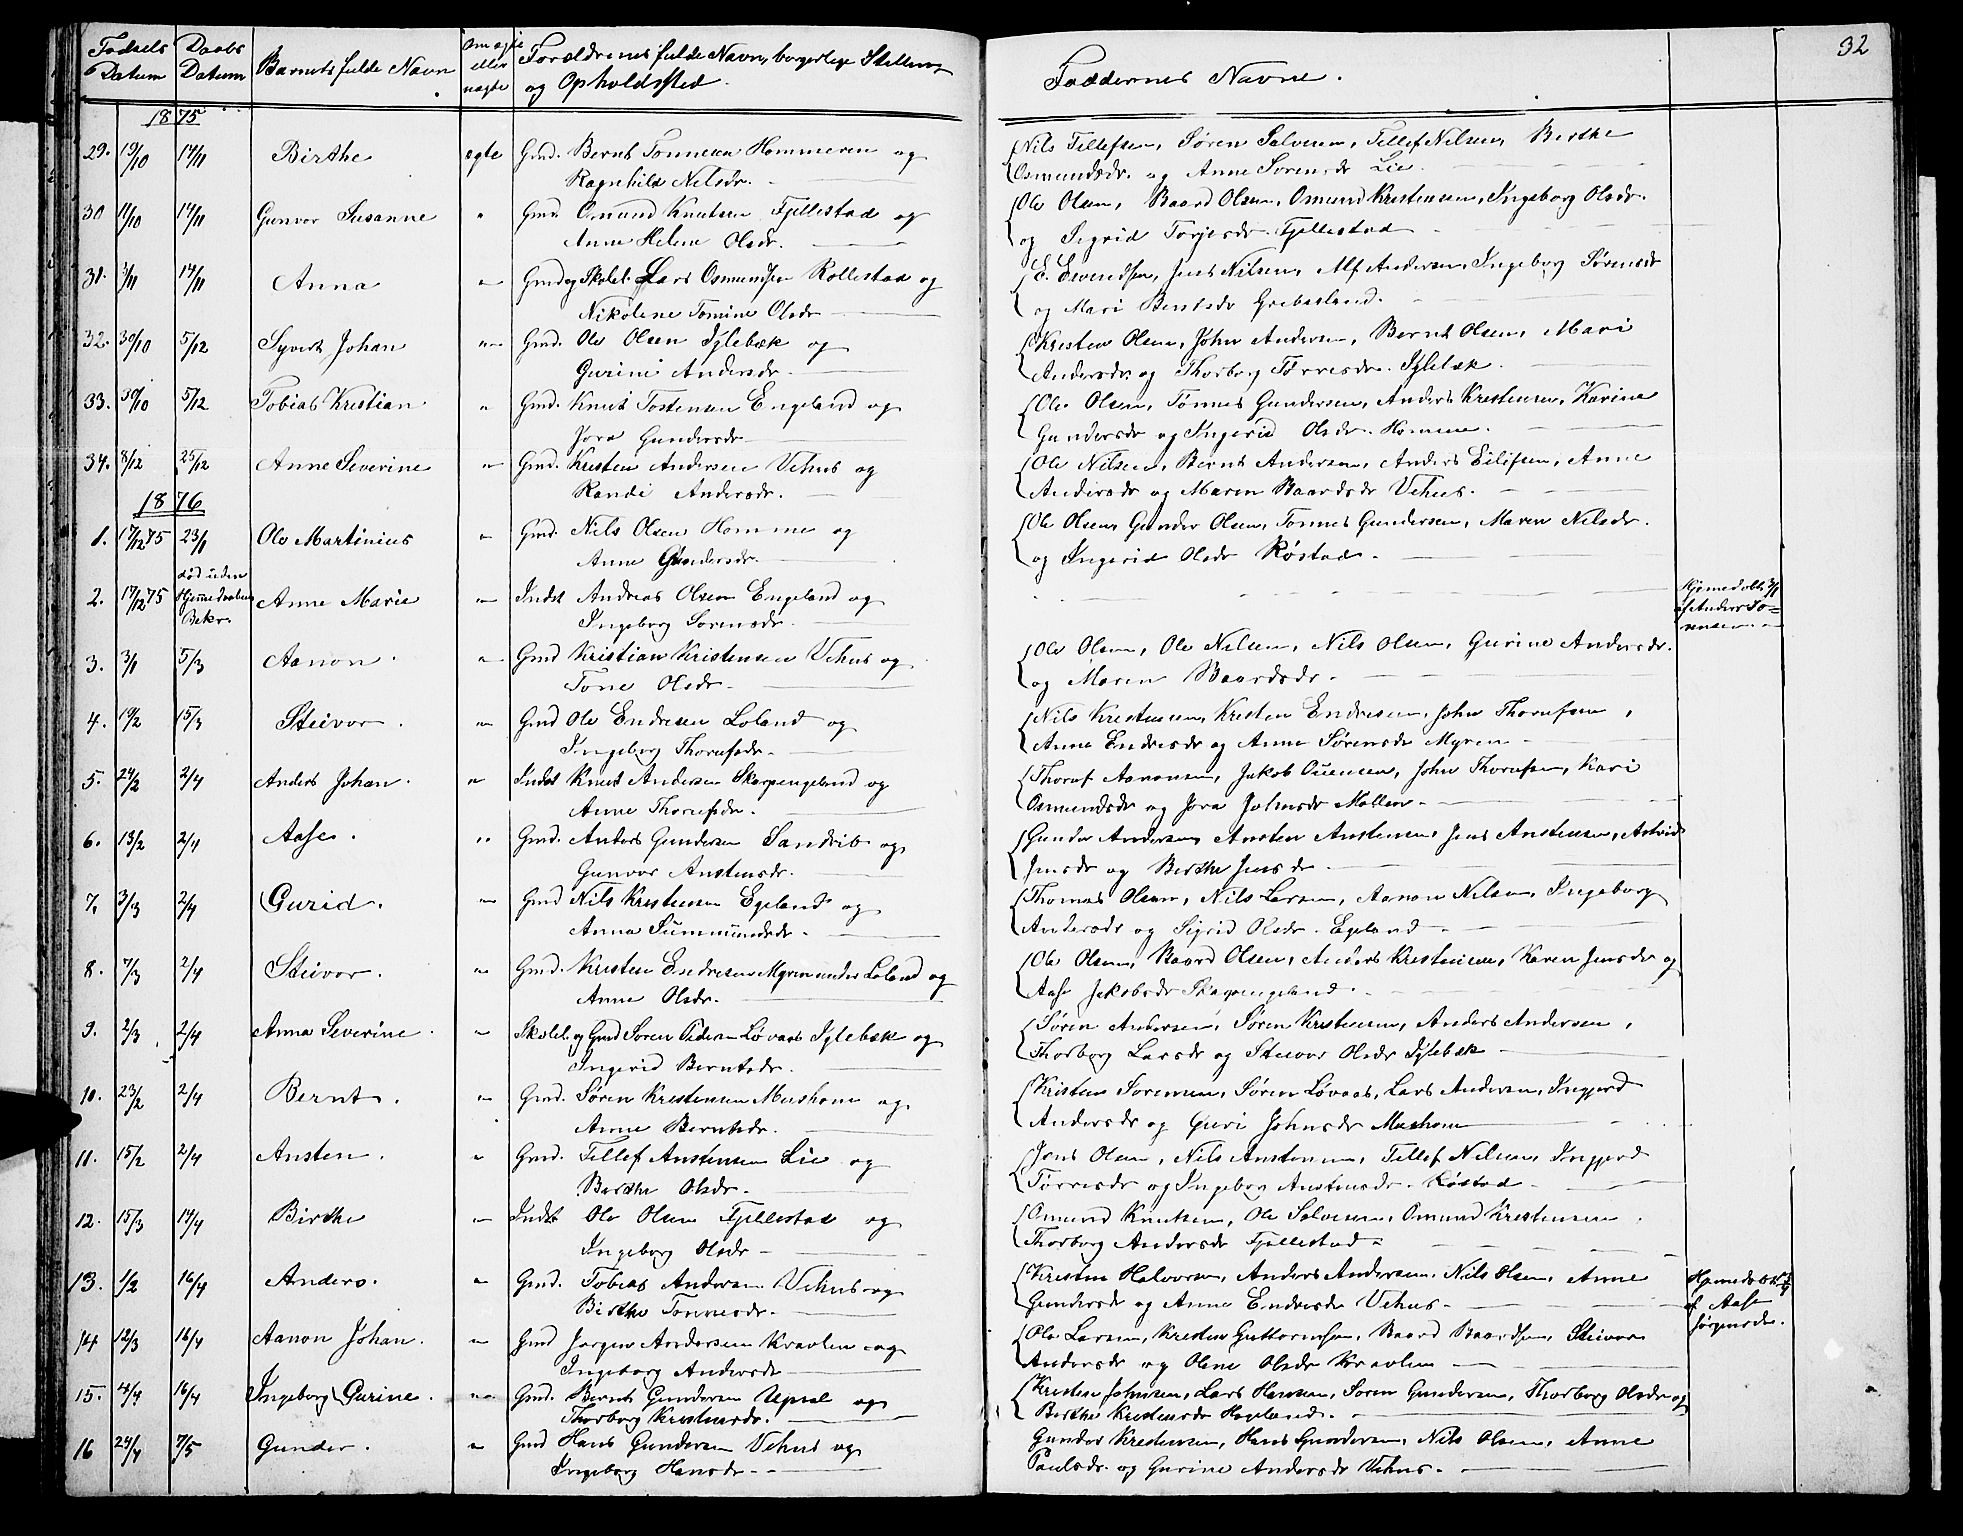 32
Fødsels Datum
Daabs Datum
Barnets fulde Navn
om ægte eller uægte
Forældrenes fulde Navn, borgerlige Stilling og Opholdsted.
Faddernes Navne.
1875
29. 19/10 14/11 Birthe ægte Gmd. Bernt Tønnesen Hommeren og
Ragnhild Nilsdr.
Nils Tellefsen, Søren Salvesen, Tellef Nilsen, Birthe
Osmundsdr. og Anne Sørensdr Lie.
30 11/10 14/11 Gunvor Susanne " Gmd. Osmund Knutsen Fjellestad og
Anne Helene Olsdr.
Ole Olsen, Baard Olsen, Osmund Kristensen, Ingeborg Olsdr.
og Sigrid Torjesdr. Fjellestad
31. 1/11 14/11 Anna " Gmd og Skolel. Lars Osmundsen Rollestad og
Nikolene Tomine Olsdr
E. Evendsen, Jens Nilsen, Alf Andersen, Ingeborg Sørensdr
og Mari Bentsdr Grebesland.
32. 30/10 5/12 Syvert Johan " Gmd. Ole Olsen Iglebæk og
Gurine Andersdr.
Kristen Olsen, John Andersen, Bernt Olsen, Mari
Andersdr. og Thorborg Torresdr. Iglebæk.
33. 30/10 5/12 Tobias Kristian " Gmd. Knut Tostensen Engeland og
Jora Gundersdr
Ole Olsen, Tønnes Gundersen, Anders Kristensen, Karine
Gundersdr og Ingerid Olsdr. Homme.
34. 8/12 25/12 Anne Severine " Gmd. Kristen Andersen Vehus og
Randi Andersdr.
Ole Nilsen, Bernt Andersen, Anders Eilifsen, Anne
Andersdr og Maren Baardsdr Vehus.
1876
1. 17/12 75 23/1 Ole Martinius " Gmd. Nils Olsen Homme og
Anne Gundersdr.
Ole Olsen, Gunder Olsen, Tønnes Gundersen, Maren Nilsdr.
og Ingerid Olsdr Røstad.
2. 17/12 75 død uden Hjemmedaabens Bekr. Anne Marie " Indst Andreas Olsen Engeland og
Ingeborg Sørensdr.
Hjemmedøbt 3/1
af Anders So=
rensen.
3. 3/1 5/3 Aanon. " Gmd Kristian Kristensen Vehus og
Tone Olsdr.
Ole Olsen, Ole Nilsen, Nils Olsen, Gurine Andersdr.
og Maren Baardsdr.
4. 19/2 15/3 Steivor. " Gmd Ole Endresen Loland og
Ingeborg Thorufsdr.
Nils Kristensen, Kristen Endresen, John Thorufsen,
Anne Endresdr og Anne Sørensdr Myren
5. 24/2 2/4 Anders Johan. " Indst Knut Andersen Skarpengeland og
Anne Thorufsdr.
Thoruf Aanonsen, Jakob Ouensen, John Thorufsen, Kari
Osmundsdr og Jora Johnsdr Mollen
6. 13/2 2/4 Aase. " Gmd. Anders Gundersen Sandrib og
Gunvor Anstensdr.
Gunder Andersen, Ansten Anstensen, Jens Anstensen, Astrid
Jensdr og Birthe Jensdr
7. 3/3 2/4 Gurid. " Gmd Nils Kristensen Egeland og
Anna Summundsdr.
Thomas Olsen, Nils Larsen, Aanon Nilsen, Ingeborg
Andersdr og Sigrid Olsdr. Egeland
8. 7/3 2/4 Steivor. " Gmd. Kristen Endresen Myren under Loland og
Anne Olsdr.
Ole Olsen, Baard Olsen, Anders Kristensen, Karen Jensdr og
Aase Jakobsdr Skarpengeland.
9. 2/3 2/4 Anna Severine. " Skolel. og Gmd Søren Pedersen Løvaas Iglebæk og
Ingerid Berntsdr.
Søren Andersen, Søren Kristensen, Anders Andersen,
Thorborg Larsdr og Steivor Olsdr Iglebæk
10. 23/2 2/4 Bernt. " Gmd. Søren Kristensen Mushom og
Anne Berntsdr.
Kristen Sørensen, Søren Løvaas, Lars Andersen, Ingjerd
Andersdr og Guri Johnsdr Mushom
11. 15/2 2/4 Ansten. " Gmd. Tellef Anstensen Lie og
Birthe Olsdr.
Jens Olsen, Nils Anstensen, Tellef Nilsen, Ingjerd
Torresdr og Ingeborg Anstensdr. Røstad
12. 15/3 14/4 Birthe " Indst Ole Olsen Fjellestad og
Ingeborg Olsdr
Osmund Knutsen, Ole Salvesen, Osmund Kristensen.
Thorborg Andersdr Fjellestad
13. 1/2 16/4 Anders. " Gmd. Tobias Andersen Vehus og
Birthe Tønnesdr.
Kristen Halvorsen, Anders Andersen, Nils Olsen, Anne
Gundersdr og Anne Endresdr Vehus
Hjemmedøbt
af Aase
Jørgensdr.
14 12/3 16/4 Aanon Johan. " Gmd Jørgen Andersen Kravlen og
Ingeborg Andersdr
Ole Larsen, Kristen Guttormsen, Baard Baardsen, Steivor
Andersdr og Olene Olsdr Kravlen
15. 4/4 16/4 Ingeborg Gurine. " Gmd. Bernt Gundersen Upsal og
Thorborg Kristensdr.
Kristen Johnsen, Lars Hansen, Søren Gundersen, Thorborg Olsdr og
Birthe Kristensdr Hageland.
16 24/4 7/5 Gunder. " Gmd Hans Gundersen Vehus og
Ingeborg Hansdr
Gunder Kristensen, Hans Gundersen, Nils Olsen, Anne
Paulsdr. og Gurine Andersdr Vehus.